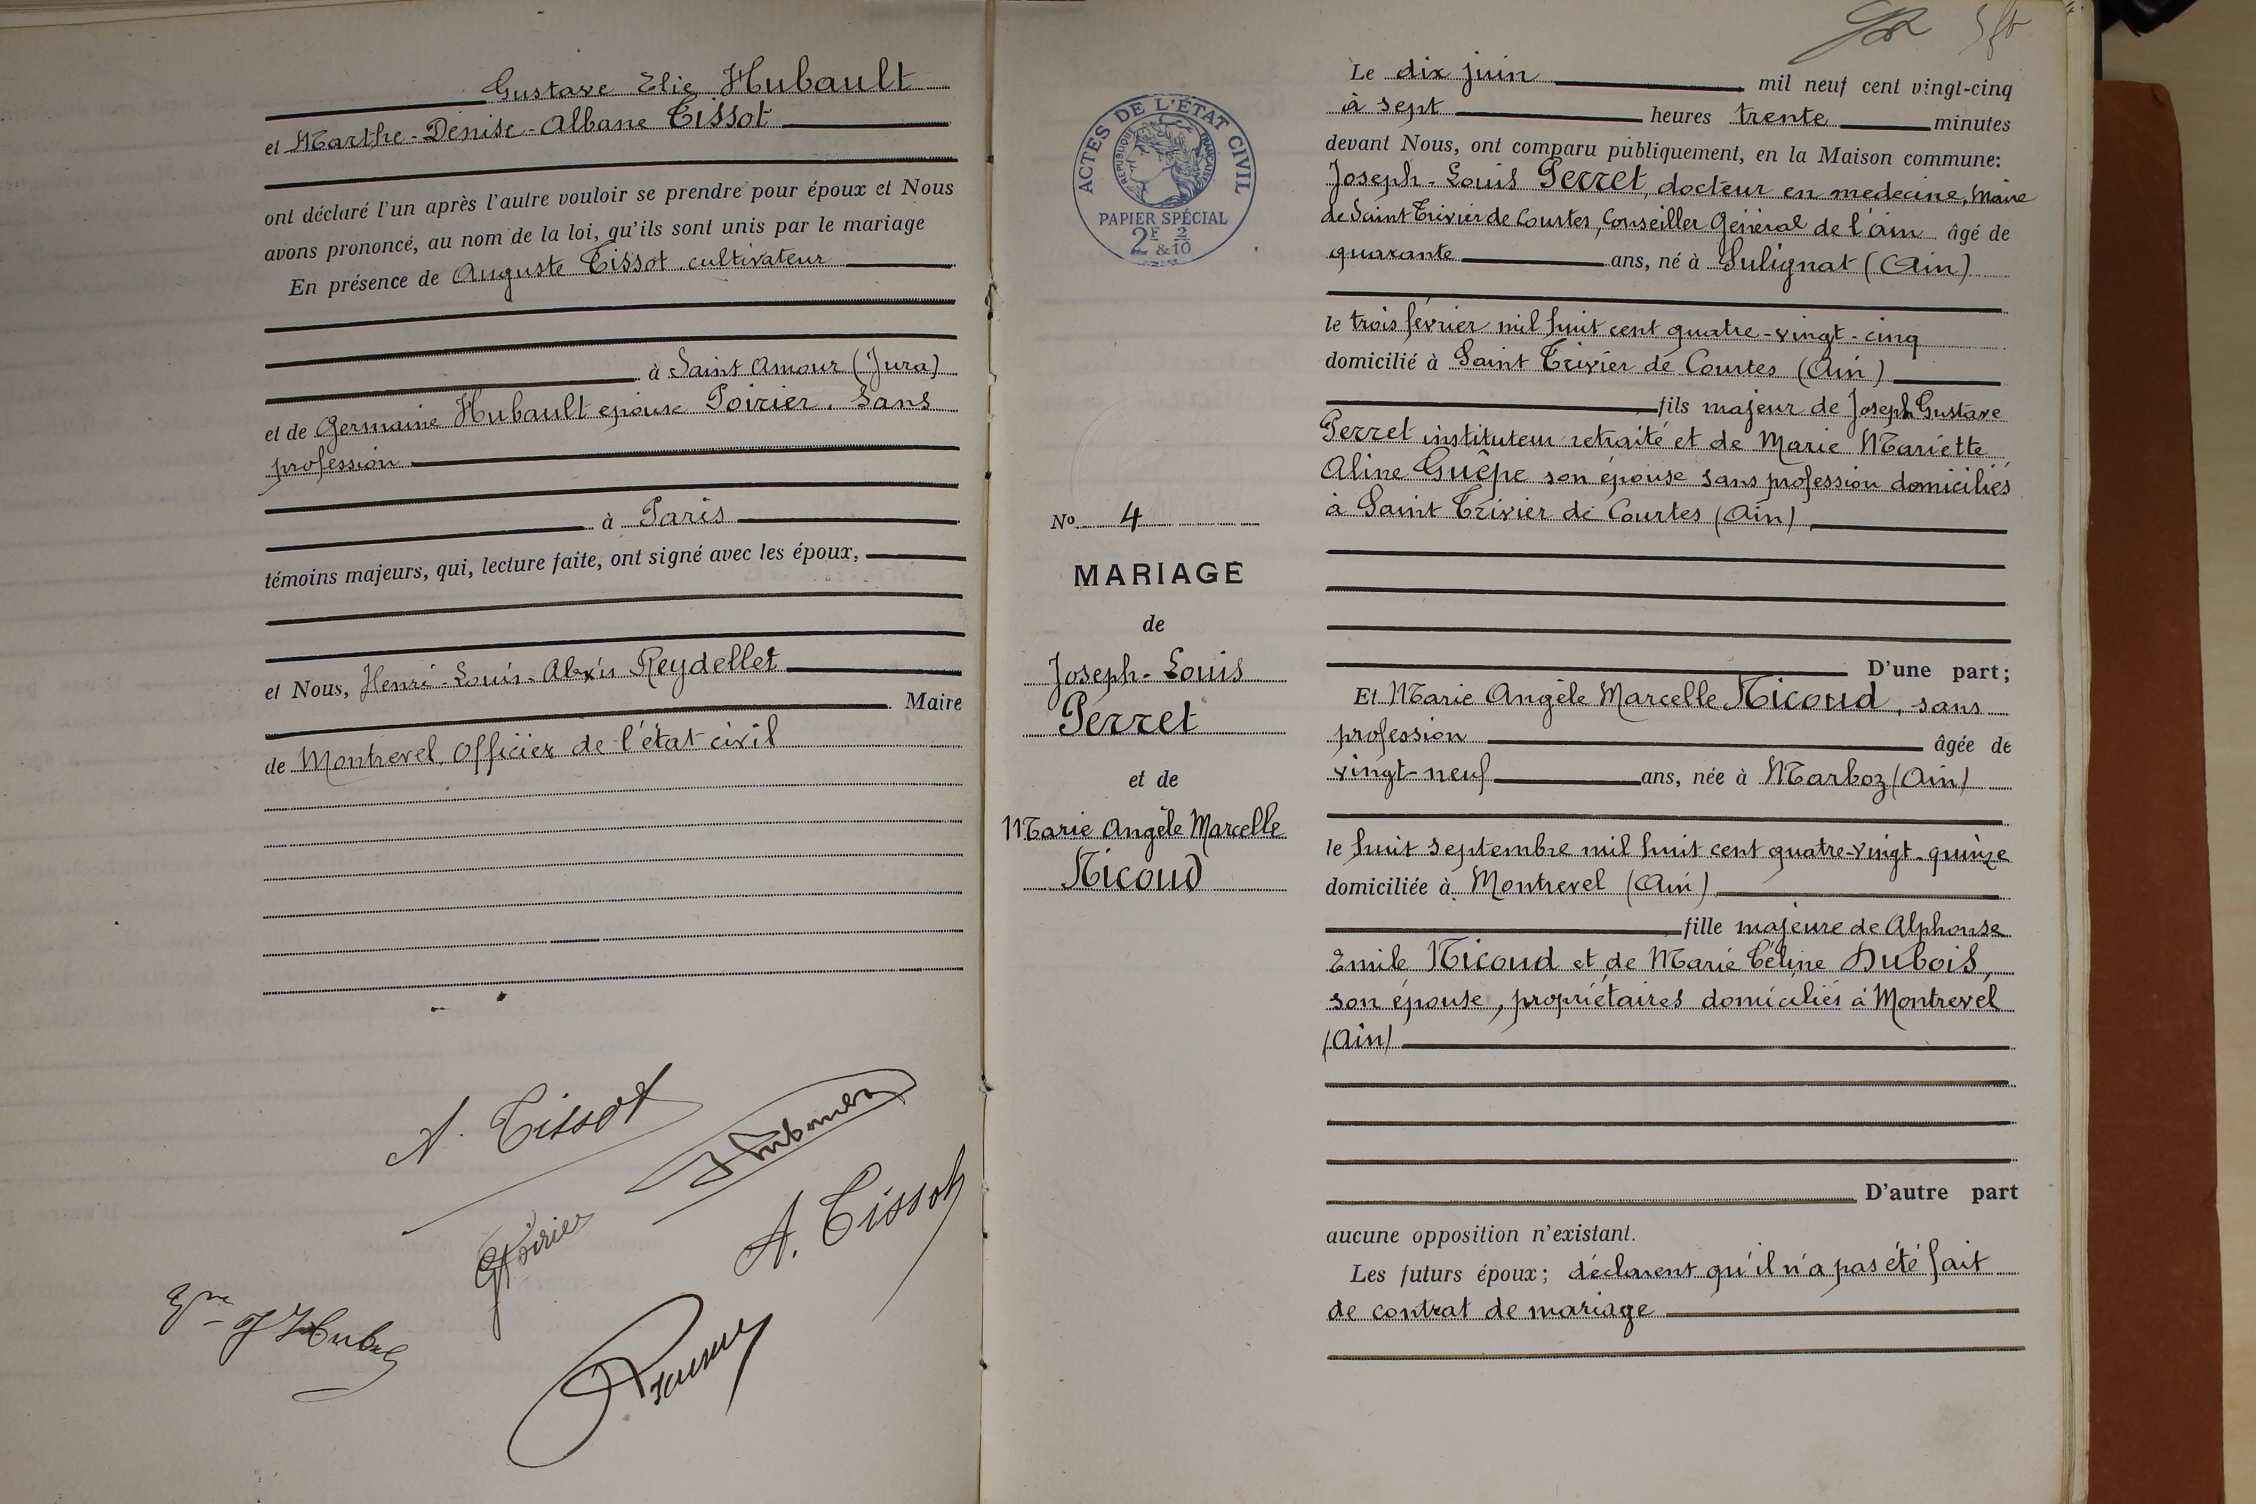 Gustave Elie Hubault
et Marthe-Denise-Albane Tissot
ont déclaré l'un après l'autre vouloir se prendre pour époux et Nous
avons prononcé, au nom de la loi, qu'ils sont unis par le mariage
En présence de Auguste Tissot, cultivateur
à Saint Amour (Jura)
et de Germaine Hubault épouse Poirier, sans
profession
à Paris
témoins majeurs, qui, lecture faite, ont signé avec les époux,
et Nous, Henri-Louis-Alexis Reydellet
Maire
de Montrevel, Officier de l'état civil
A. Tissot
GPoirier
A. Tissot
ACTES DE L'ÉTAT CIVIL
RÉPUBLIQUE FRANÇAISE
PAPIER SPÉCIAL
2F & 2/10
No 4
MARIAGE
de
Joseph-Louis
Perret
et de
Marie Angèle Marcelle
Nicoud
Le dix juin mil neuf cent vingt-cinq
à sept heures trente minutes
devant Nous, ont comparu publiquement, en la Maison commune:
Joseph-Louis Perret, docteur en medecine, Maire
de Saint Trivier de Courtes, Conseiller Général de l'Ain âgé de
quarante ans, né à Sulignat (Ain)
le trois février mil huit cent quatre-vingt-cinq
domicilié à Saint Trivier de Courtes (Ain)
fils majeur de Joseph Gustave
Perret instituteur retraité et de Marie Mariette
Aline Guêpe son épouse sans profession domiciliés
à Saint Trivier de Courtes (Ain)
D'une part;
Et Marie Angèle Marcelle Nicoud, sans
profession âgée de
vingt-neuf ans, née à Marboz (Ain)
le huit septembre mil huit cent quatre-vingt-quinze
domiciliée à Montrevel (Ain)
fille majeure de Alphonse
Emile Nicoud et de Marie Céline Dubois,
son épouse, propriétaires domiciliés à Montrevel
(Ain)
D'autre part
aucune opposition n'existant.
Les futurs époux; déclarent qu'il n'a pas été fait
de contrat de mariage